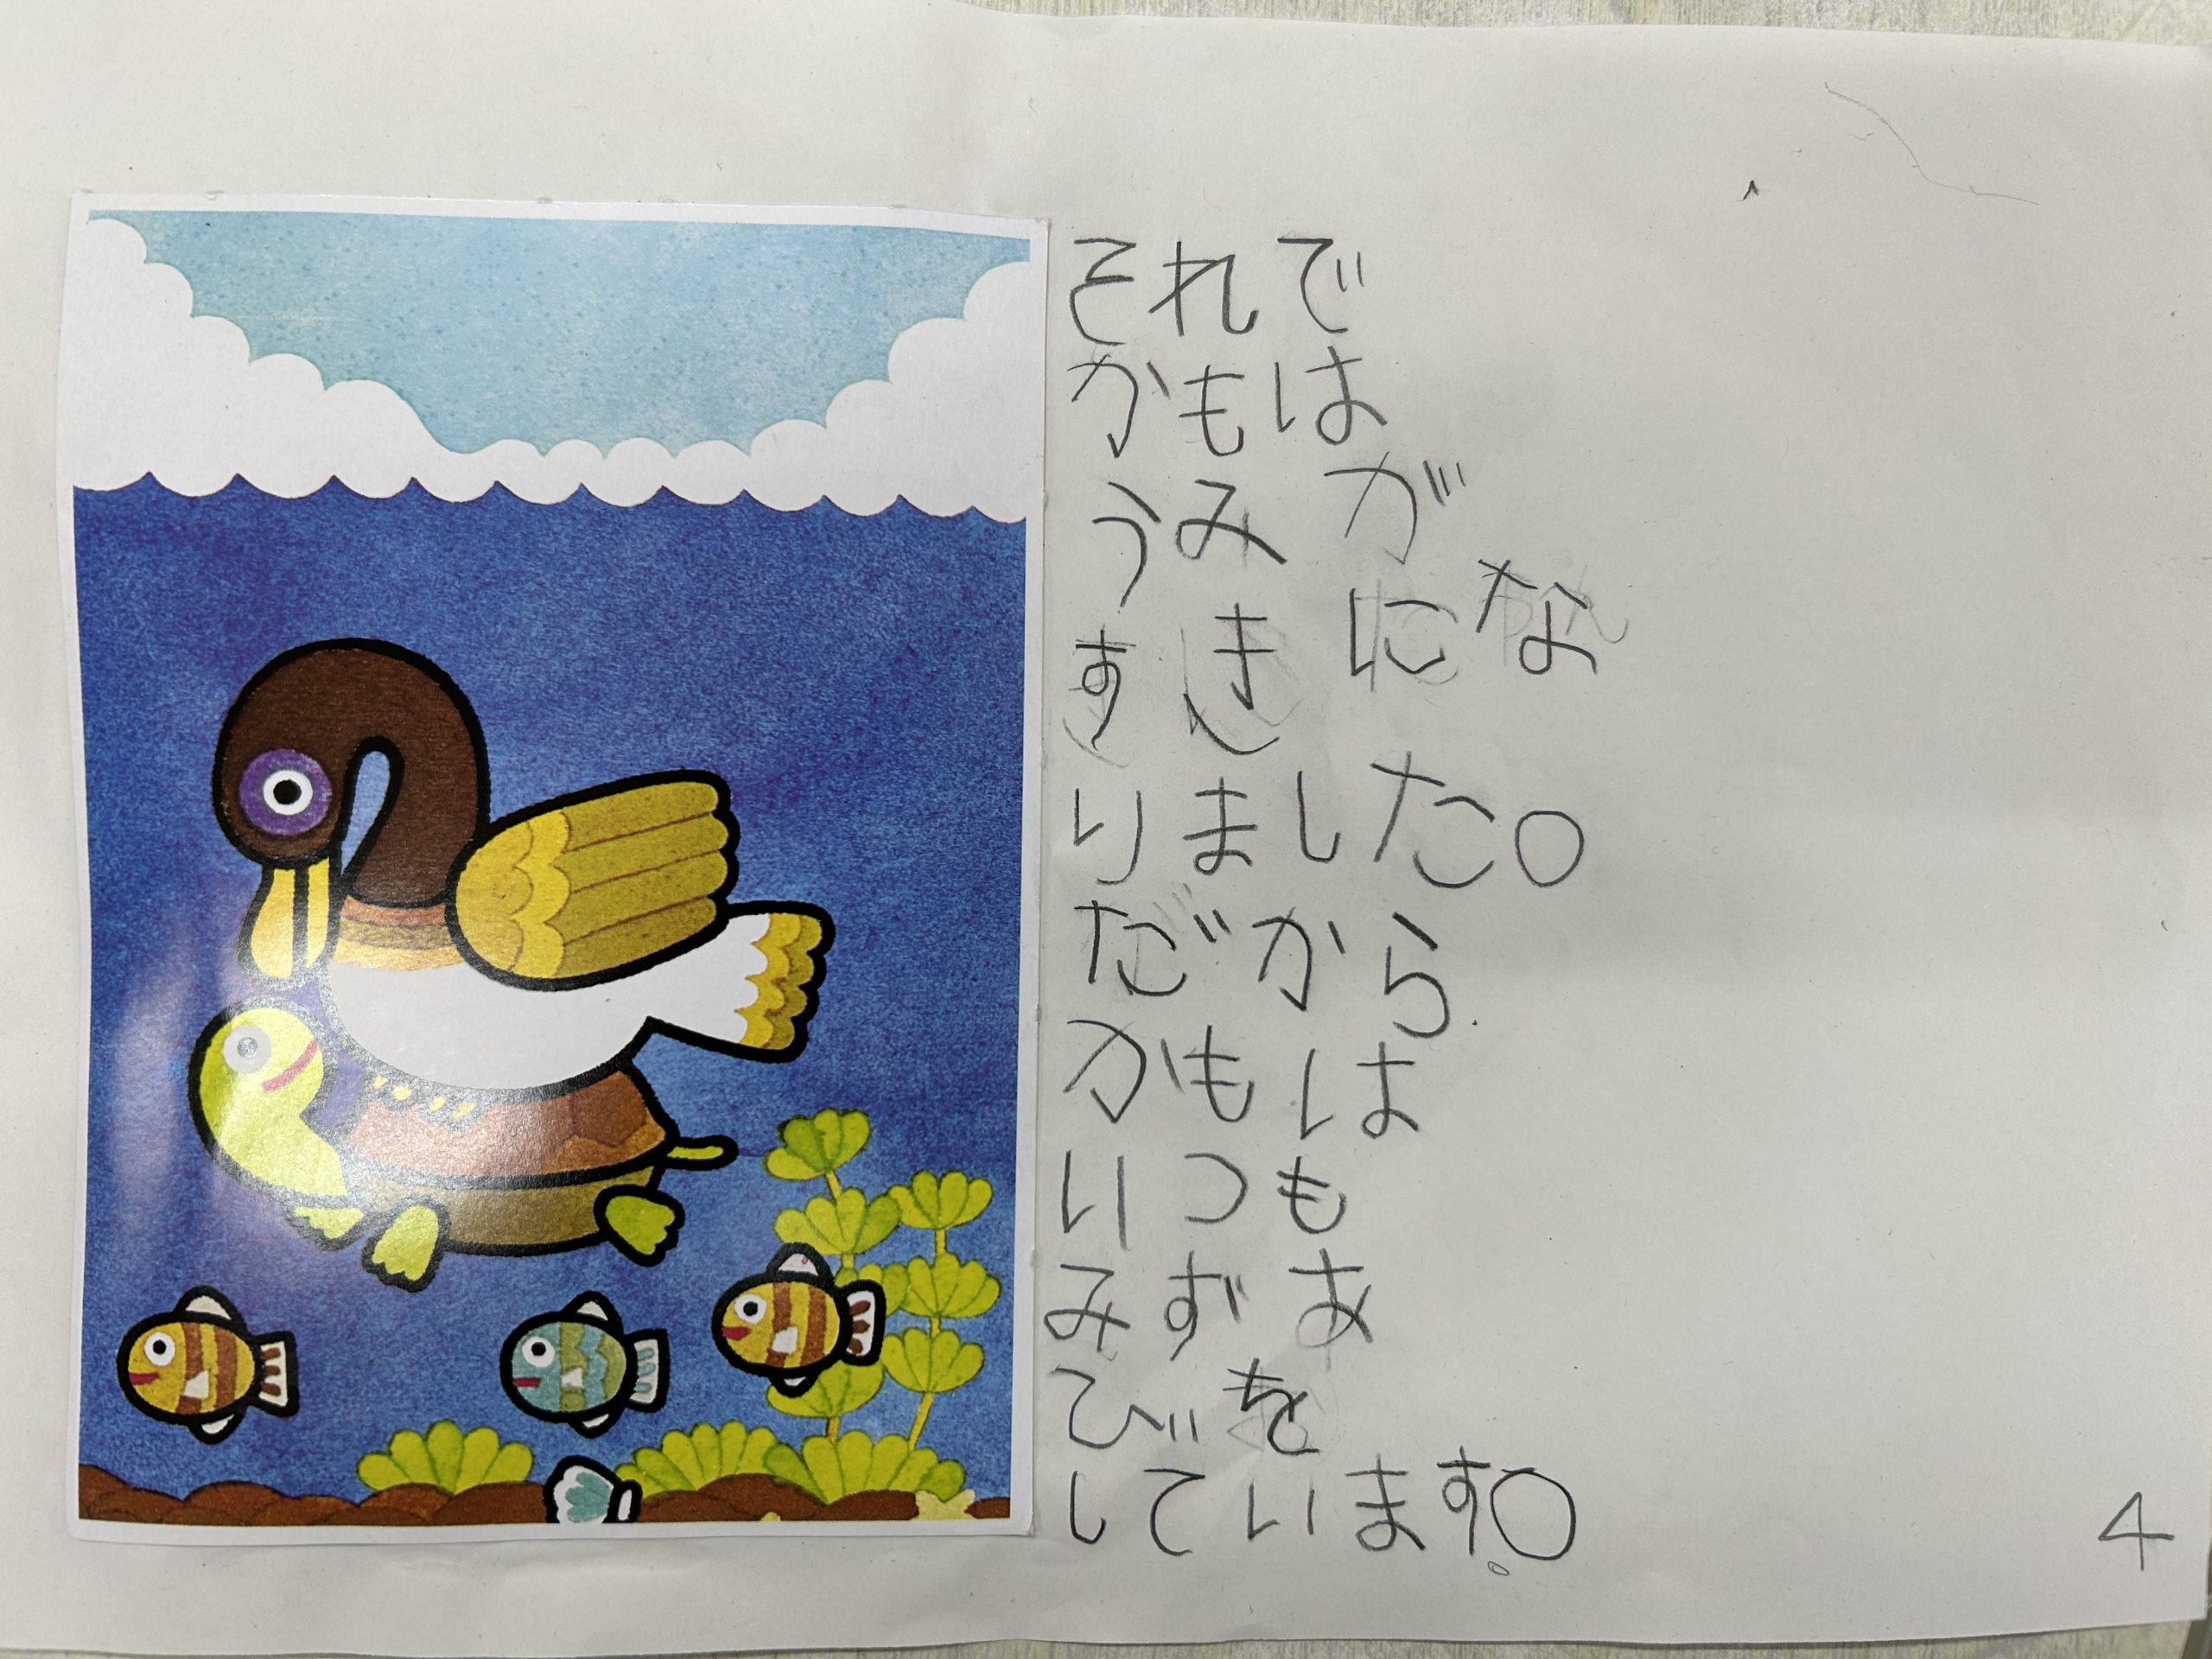 それで
かもは
うみが
すきにな
りました。
だから
かもは
いつも
みずあ
びを
しています。
4